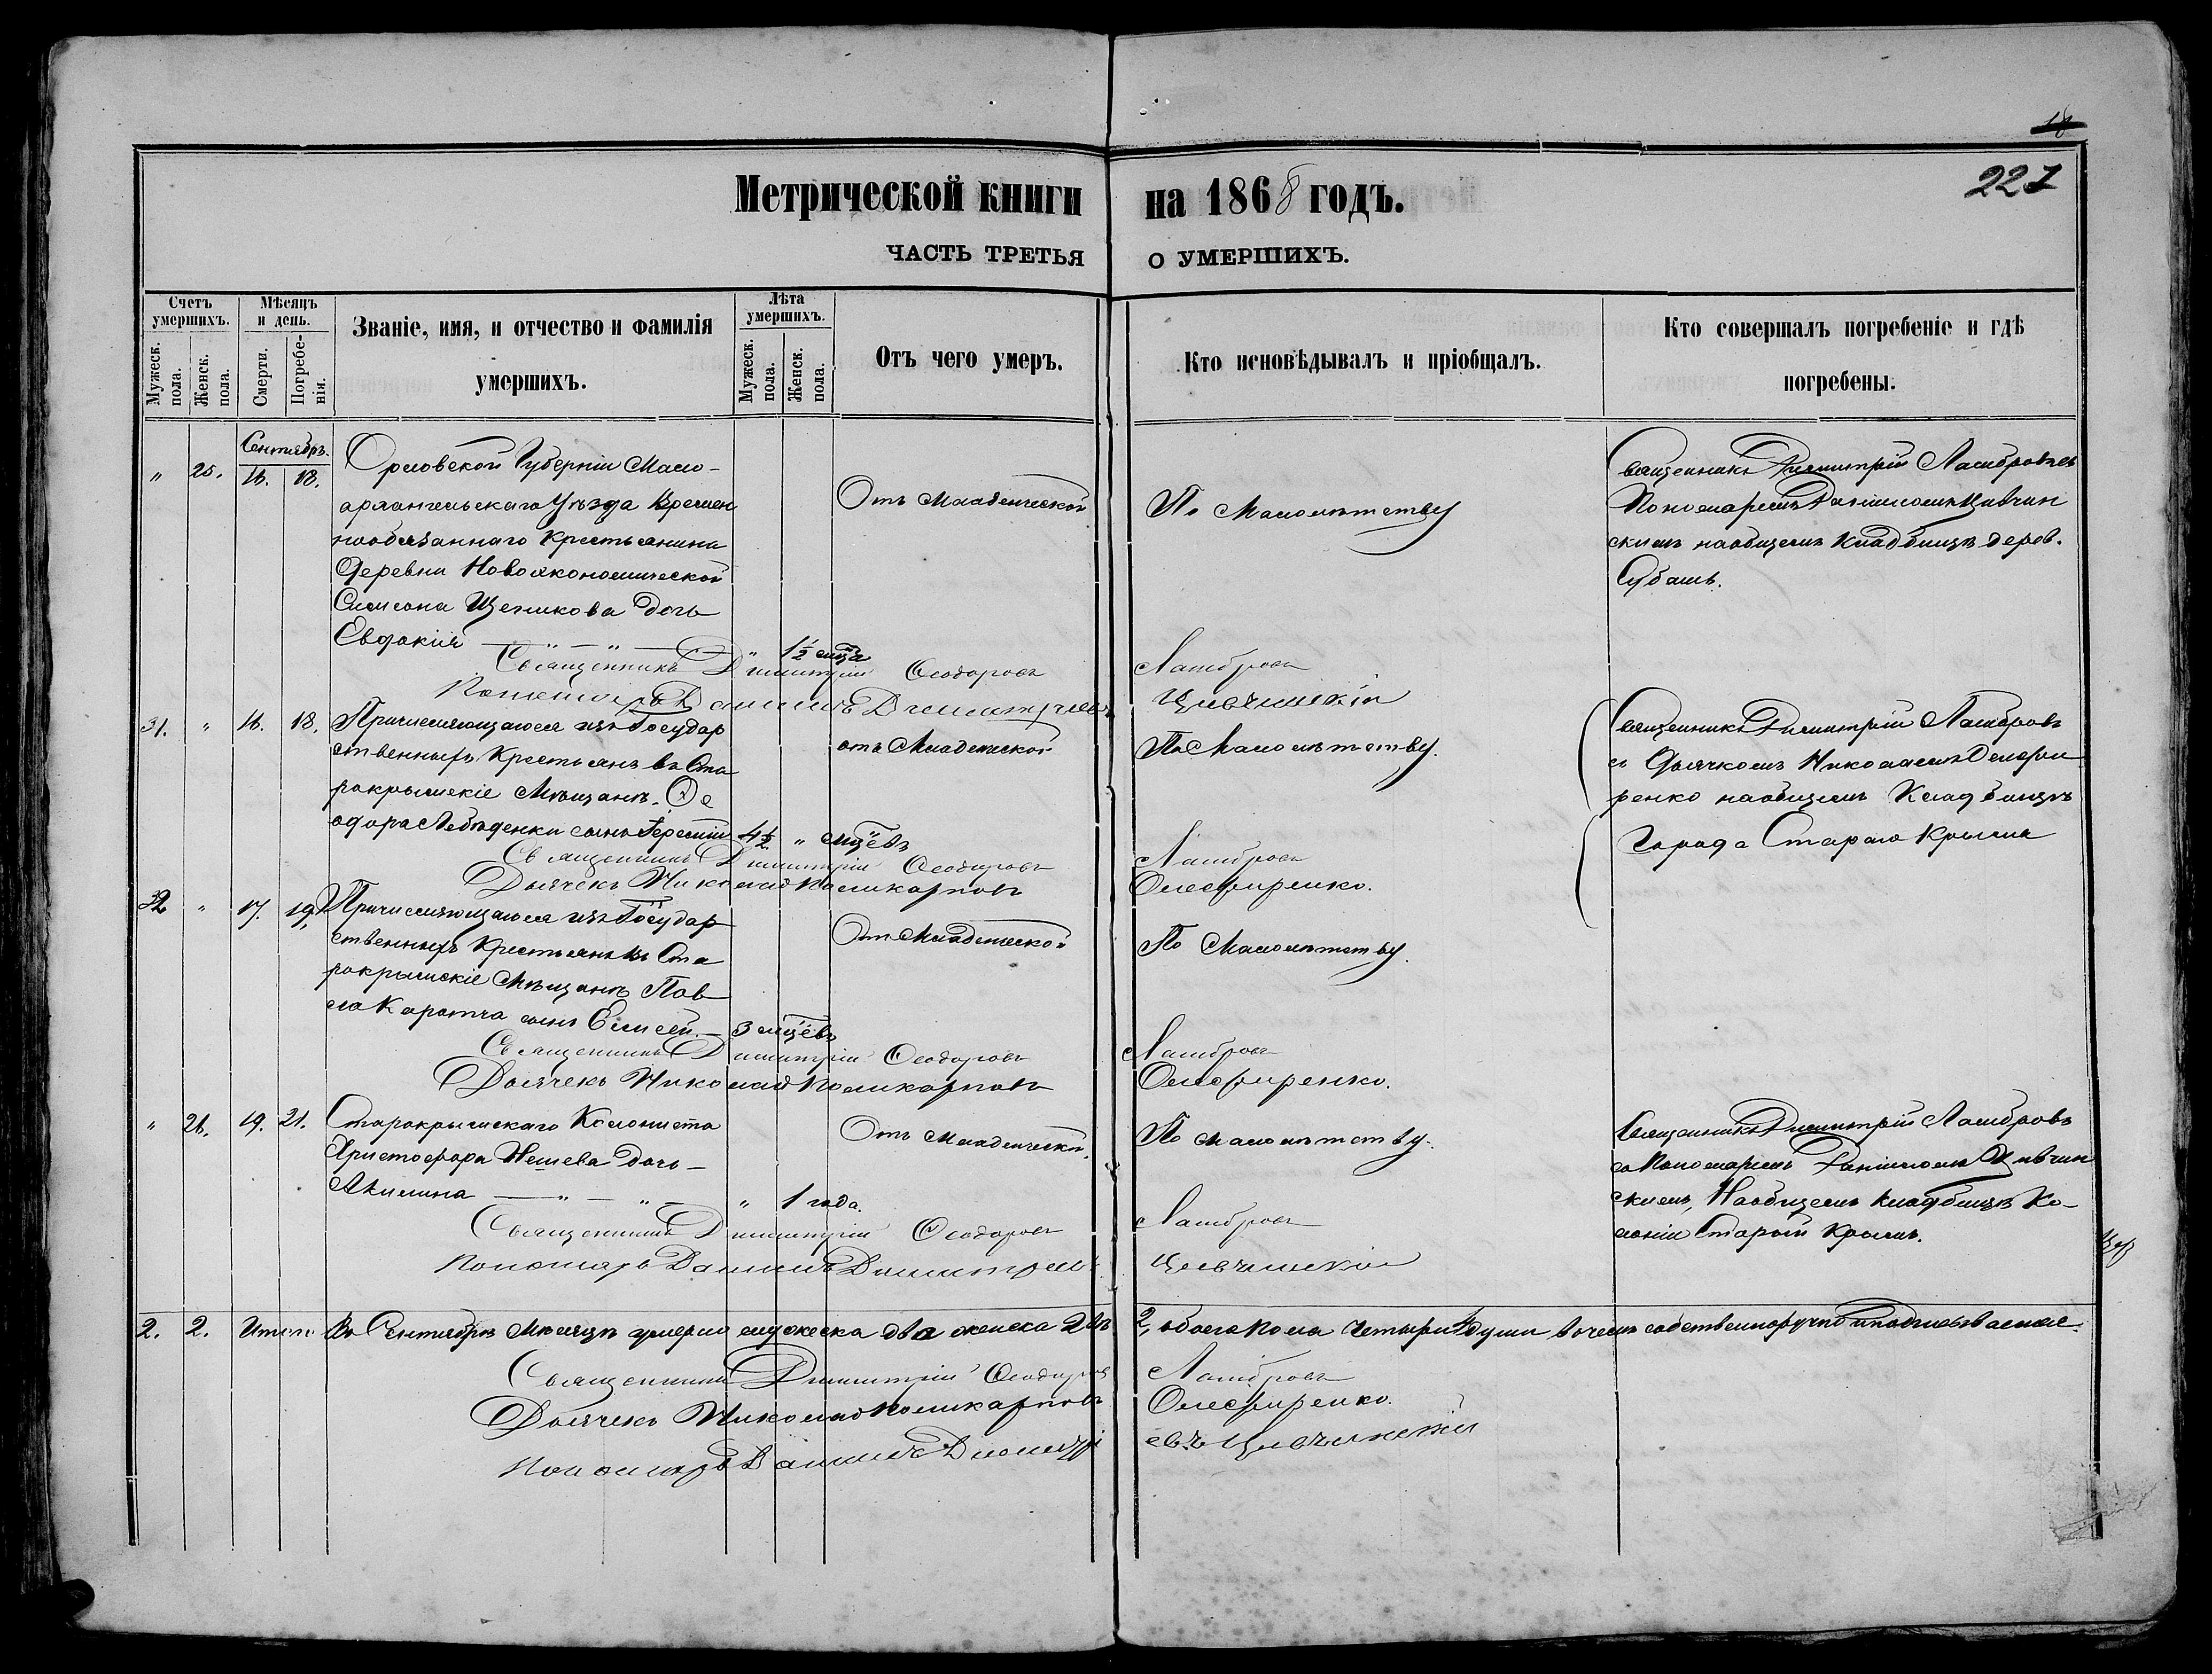 18
221
Метрической книги на 1868 годъ.
ЧАСТЬ ТРЕТЬЯ О УМЕРШИХЪ.
Счетъ умершихъ.
Мужеск. пола.
Женск. пола.
Мѣсяцъ и день.
Смерти.
Погребенія.
Званіе, имя, и отчество и фамилія
умершихъ.
Лѣта умершихъ.
Мужеск. пола.
Женск. пола.
Отъ чего умеръ.
Кто исповѣдывалъ и пріобщалъ.
Кто совершалъ погребеніе и гдѣ
погребены.
Сентябрь.
" 25. 16. 18.
Орловской Губерніи Мало-
архангельскаго Уѣзда Времен
нообязаннаго Крестьянина
Деревни Новоэкономической
Симеона Щеникова дочь
Евдокія — " — " — " 1½ мца
Отъ Младенческой
По Малолѣтству
Священникъ Димитрій Ламбровъ съ
Пономаремъ Даніиломъ Цивчин
скимъ на общемъ Кладбищѣ дерев.
Субашъ.
Священникъ Димитрій Ѳеодоровъ Ламбровъ
Пономарь Даніилъ Димитріевъ Цивчинскій
31. " 16. 18.
Причисляющагося изъ Государ
ственныхъ Крестьянъ въ Ста
рокрымскіе Мѣщанъ Ѳе
одора Лебѣденки сынъ Іеремій 4½ " мцевъ
отъ Младенческой
По Малолѣтству.
Священникъ Димитрій Ламбровъ
съ Дьячкомъ Николаемъ Олефи
ренко на общемъ Кладбищѣ
Города Стараго Крыма
Священникъ Димитрій Ѳеодоровъ Ламбровъ
Дьячекъ Николай Поликарповъ Олефиренко.
32 " 17. 19.
Причисляющагося изъ Государ
ственныхъ Крестьянъ въ Ста
рокрымскіе Мѣщанъ Пав
ла Каратча сынъ Елисей. — 3 мцевъ
Отъ Младенческой
По Малолѣтству.
Священникъ Димитрій Ѳеодоровъ Ламбровъ
Дьячекъ Николай Поликарповъ Олефиренко.
" 26. 19. 21.
Старокрымскаго Колониста
Христофора Нешева дочь —
Акилина — " — " — " 1 года.
Отъ Младенческой.
По малолѣтству.
Священникъ Димитрій Ламбровъ
съ Пономаремъ Даніиломъ Цивчин
скимъ, На общемъ кладбищѣ Ко-
лоніи Старый Крымъ.
Священникъ Димитрій Ѳеодоровъ Ламбровъ
Пономарь Даніилъ Димитріевъ Цивчинскій
2. 2. Итого Въ Сентябрѣ Мѣсяцѣ умерли мужеска два женска двѣ 2, обоего пола Четыри 4 души въ чемъ собственноручно и подписываемся.
Священникъ Димитрій Ѳеодоровъ Ламбровъ
Дьячекъ Николай Поликарповъ Олефиренко.
Пономарь Даніилъ Димитріевъ Цивчинскій